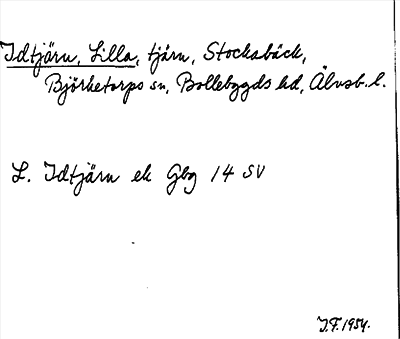 Idtjärn, Lilla, tjärn, Stocksbäck,
Björketorps sn, Bollebygds hd, Älvsb. l.
L. Idtjärn ek Gbg 14 SV
J.F. 1954.